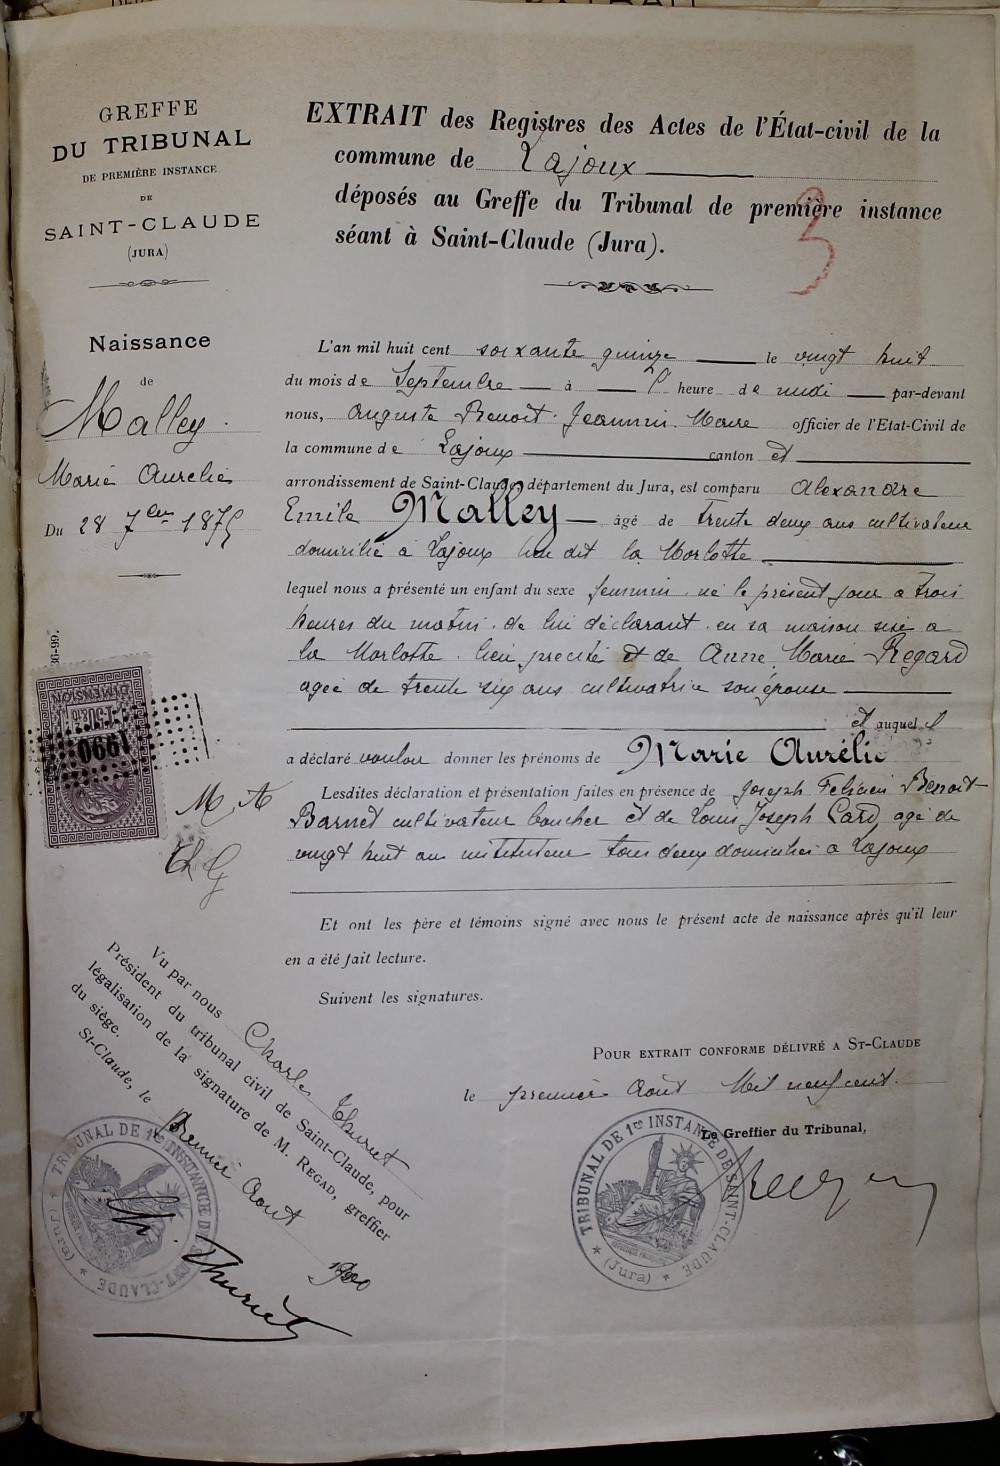 GREFFE
DU TRIBUNAL
DE PREMIÈRE INSTANCE
DE
SAINT-CLAUDE
(JURA)
EXTRAIT des Registres des Actes de l'État-civil de la
commune de Lajoux
déposés au Greffe du Tribunal de première instance
séant à Saint-Claude (Jura).
3
Naissance
de
Malley
Marie Aurelie
Du 28 7bre 1875
L'an mil huit cent soixante quinze le vingt huit
du mois de Septembre à l' heure de midi par-devant
nous, Auguste Benoit-Jeannin Maire officier de l'Etat-Civil de
la commune de Lajoux canton et
arrondissement de Saint-Claude, département du Jura, est comparu Alexandre
Emile Malley âgé de trente deux ans cultivateur
domicilié à Lajoux lieu dit la Morlotte
lequel nous a présenté un enfant du sexe feminin né le présent jour a trois
heures du matin de lui déclarant en sa maison sise a
la Morlotte lieu précité et de Anne Marie Regard
agée de trente six ans cultivatrice son épouse
et auquel il
a déclaré vouloir donner les prénoms de Marie Aurélie
Lesdites déclaration et présentation faites en présence de Joseph Felicien Benoit
Barnet cultivateur boucher et de Louis Joseph Card agé de
vingt huit ans instituteur tous deux domiciliés a Lajoux
Et ont les père et témoins signé avec nous le présent acte de naissance après qu'il leur
en a été fait lecture.
Suivent les signatures.
DIMENSION
1990
M A
Vu par nous Charles Thuriet
Président du tribunal civil de Saint-Claude, pour
légalisation de la signature de M. REGAD, greffier
du siège.
St-Claude, le Premier Aout 1900
Ch. Thuriet
TRIBUNAL DE 1re INSTANCE DE SAINT-CLAUDE
(Jura)
POUR EXTRAIT CONFORME DÉLIVRÉ A ST-CLAUDE
le premier Août Mil neuf cent.
Le Greffier du Tribunal,
TRIBUNAL DE 1re INSTANCE DE SAINT-CLAUDE
(Jura)